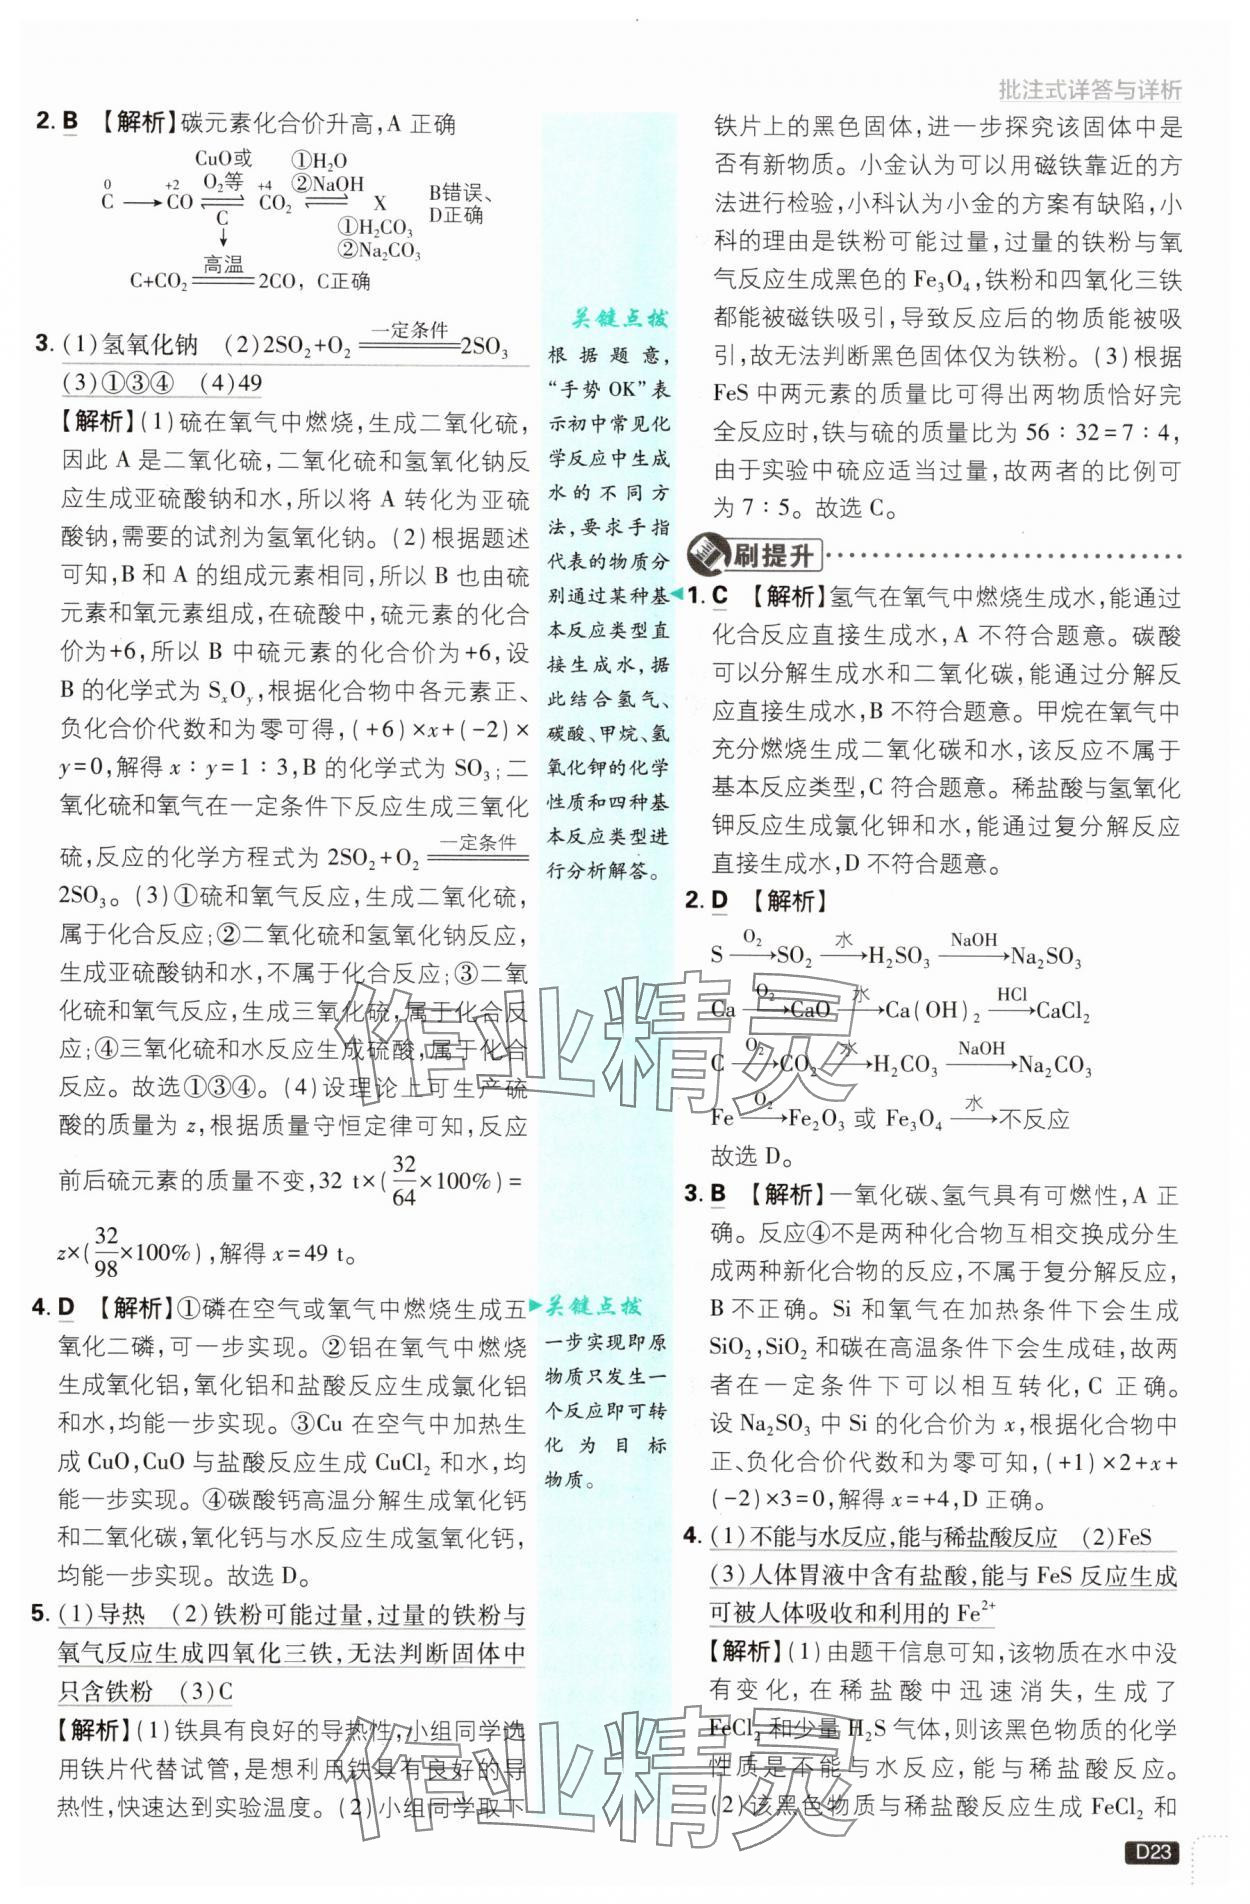 批注式详答与详析
2. B 【解析】碳元素化合价升高,A 正确
CuO或 ①H₂O
0 +2 O₂等 +4 ②NaOH B错误、
C ⟶ CO ⇌ CO₂ ⇌ X D正确
C ①H₂CO₃
↓ ②Na₂CO₃
高温
C+CO₂══2CO, C正确
3. (1)氢氧化钠 (2)2SO₂+O₂ 一定条件══ 2SO₃
(3)①③④ (4)49
【解析】(1)硫在氧气中燃烧,生成二氧化硫,
因此 A 是二氧化硫,二氧化硫和氢氧化钠反
应生成亚硫酸钠和水,所以将 A 转化为亚硫
酸钠,需要的试剂为氢氧化钠。(2)根据题述
可知,B 和 A 的组成元素相同,所以 B 也由硫
元素和氧元素组成,在硫酸中,硫元素的化合
价为+6,所以 B 中硫元素的化合价为+6,设
B 的化学式为 SₓOᵧ,根据化合物中各元素正、
负化合价代数和为零可得,(+6)×x+(-2)×
y=0,解得 x∶y=1∶3,B 的化学式为 SO₃;二
氧化硫和氧气在一定条件下反应生成三氧化
硫,反应的化学方程式为 2SO₂+O₂ 一定条件══
2SO₃。(3)①硫和氧气反应,生成二氧化硫,
属于化合反应;②二氧化硫和氢氧化钠反应,
生成亚硫酸钠和水,不属于化合反应;③二氧
化硫和氧气反应,生成三氧化硫,属于化合反
应;④三氧化硫和水反应生成硫酸,属于化合
反应。故选①③④。(4)设理论上可生产硫
酸的质量为 z,根据质量守恒定律可知,反应
前后硫元素的质量不变,32 t×(32/64×100%)=
z×(32/98×100%),解得 x=49 t。
4. D 【解析】①磷在空气或氧气中燃烧生成五
氧化二磷,可一步实现。②铝在氧气中燃烧
生成氧化铝,氧化铝和盐酸反应生成氯化铝
和水,均能一步实现。③Cu 在空气中加热生
成 CuO,CuO 与盐酸反应生成 CuCl₂ 和水,均
能一步实现。④碳酸钙高温分解生成氧化钙
和二氧化碳,氧化钙与水反应生成氢氧化钙,
均能一步实现。故选 D。
5. (1)导热 (2)铁粉可能过量,过量的铁粉与
氧气反应生成四氧化三铁,无法判断固体中
只含铁粉 (3)C
【解析】(1)铁具有良好的导热性,小组同学选
用铁片代替试管,是想利用铁具有良好的导
热性,快速达到实验温度。(2)小组同学取下
关键点拨
根据题意,
“手势 OK”表
示初中常见化
学反应中生成
水的不同方
法,要求手指
代表的物质分
别通过某种基
本反应类型直
接生成水,据
此结合氢气、
碳酸、甲烷、氢
氧化钾的化学
性质和四种基
本反应类型进
行分析解答。
关键点拨
一步实现即原
物质只发生一
个反应即可转
化为目标
物质。
铁片上的黑色固体,进一步探究该固体中是
否有新物质。小金认为可以用磁铁靠近的方
法进行检验,小科认为小金的方案有缺陷,小
科的理由是铁粉可能过量,过量的铁粉与氧
气反应生成黑色的 Fe₃O₄,铁粉和四氧化三铁
都能被磁铁吸引,导致反应后的物质能被吸
引,故无法判断黑色固体仅为铁粉。(3)根据
FeS 中两元素的质量比可得出两物质恰好完
全反应时,铁与硫的质量比为 56∶32=7∶4,
由于实验中硫应适当过量,故两者的比例可
为 7∶5。故选 C。
刷提升
1. C 【解析】氢气在氧气中燃烧生成水,能通过
化合反应直接生成水,A 不符合题意。碳酸
可以分解生成水和二氧化碳,能通过分解反
应直接生成水,B 不符合题意。甲烷在氧气中
充分燃烧生成二氧化碳和水,该反应不属于
基本反应类型,C 符合题意。稀盐酸与氢氧化
钾反应生成氯化钾和水,能通过复分解反应
直接生成水,D 不符合题意。
2. D 【解析】
S —O₂→ SO₂ —水→ H₂SO₃ —NaOH→ Na₂SO₃
Ca —O₂→ CaO —水→ Ca(OH)₂ —HCl→ CaCl₂
C —O₂→ CO₂ —水→ H₂CO₃ —NaOH→ Na₂CO₃
Fe —O₂→ Fe₂O₃ 或 Fe₃O₄ —水→ 不反应
故选 D。
3. B 【解析】一氧化碳、氢气具有可燃性,A 正
确。反应④不是两种化合物互相交换成分生
成两种新化合物的反应,不属于复分解反应,
B 不正确。Si 和氧气在加热条件下会生成
SiO₂,SiO₂ 和碳在高温条件下会生成硅,故两
者在一定条件下可以相互转化,C 正确。
设 Na₂SO₃ 中 Si 的化合价为 x,根据化合物中
正、负化合价代数和为零可知,(+1)×2+x+
(-2)×3=0,解得 x=+4,D 正确。
4. (1)不能与水反应,能与稀盐酸反应 (2)FeS
(3)人体胃液中含有盐酸,能与 FeS 反应生成
可被人体吸收和利用的 Fe²⁺
【解析】(1)由题干信息可知,该物质在水中没
有变化,在稀盐酸中迅速消失,生成了
FeCl₂ 和少量 H₂S 气体,则该黑色物质的化学
性质是不能与水反应,能与稀盐酸反应。
(2)该黑色物质与稀盐酸反应生成 FeCl₂ 和
作业精灵
作业精灵
D23